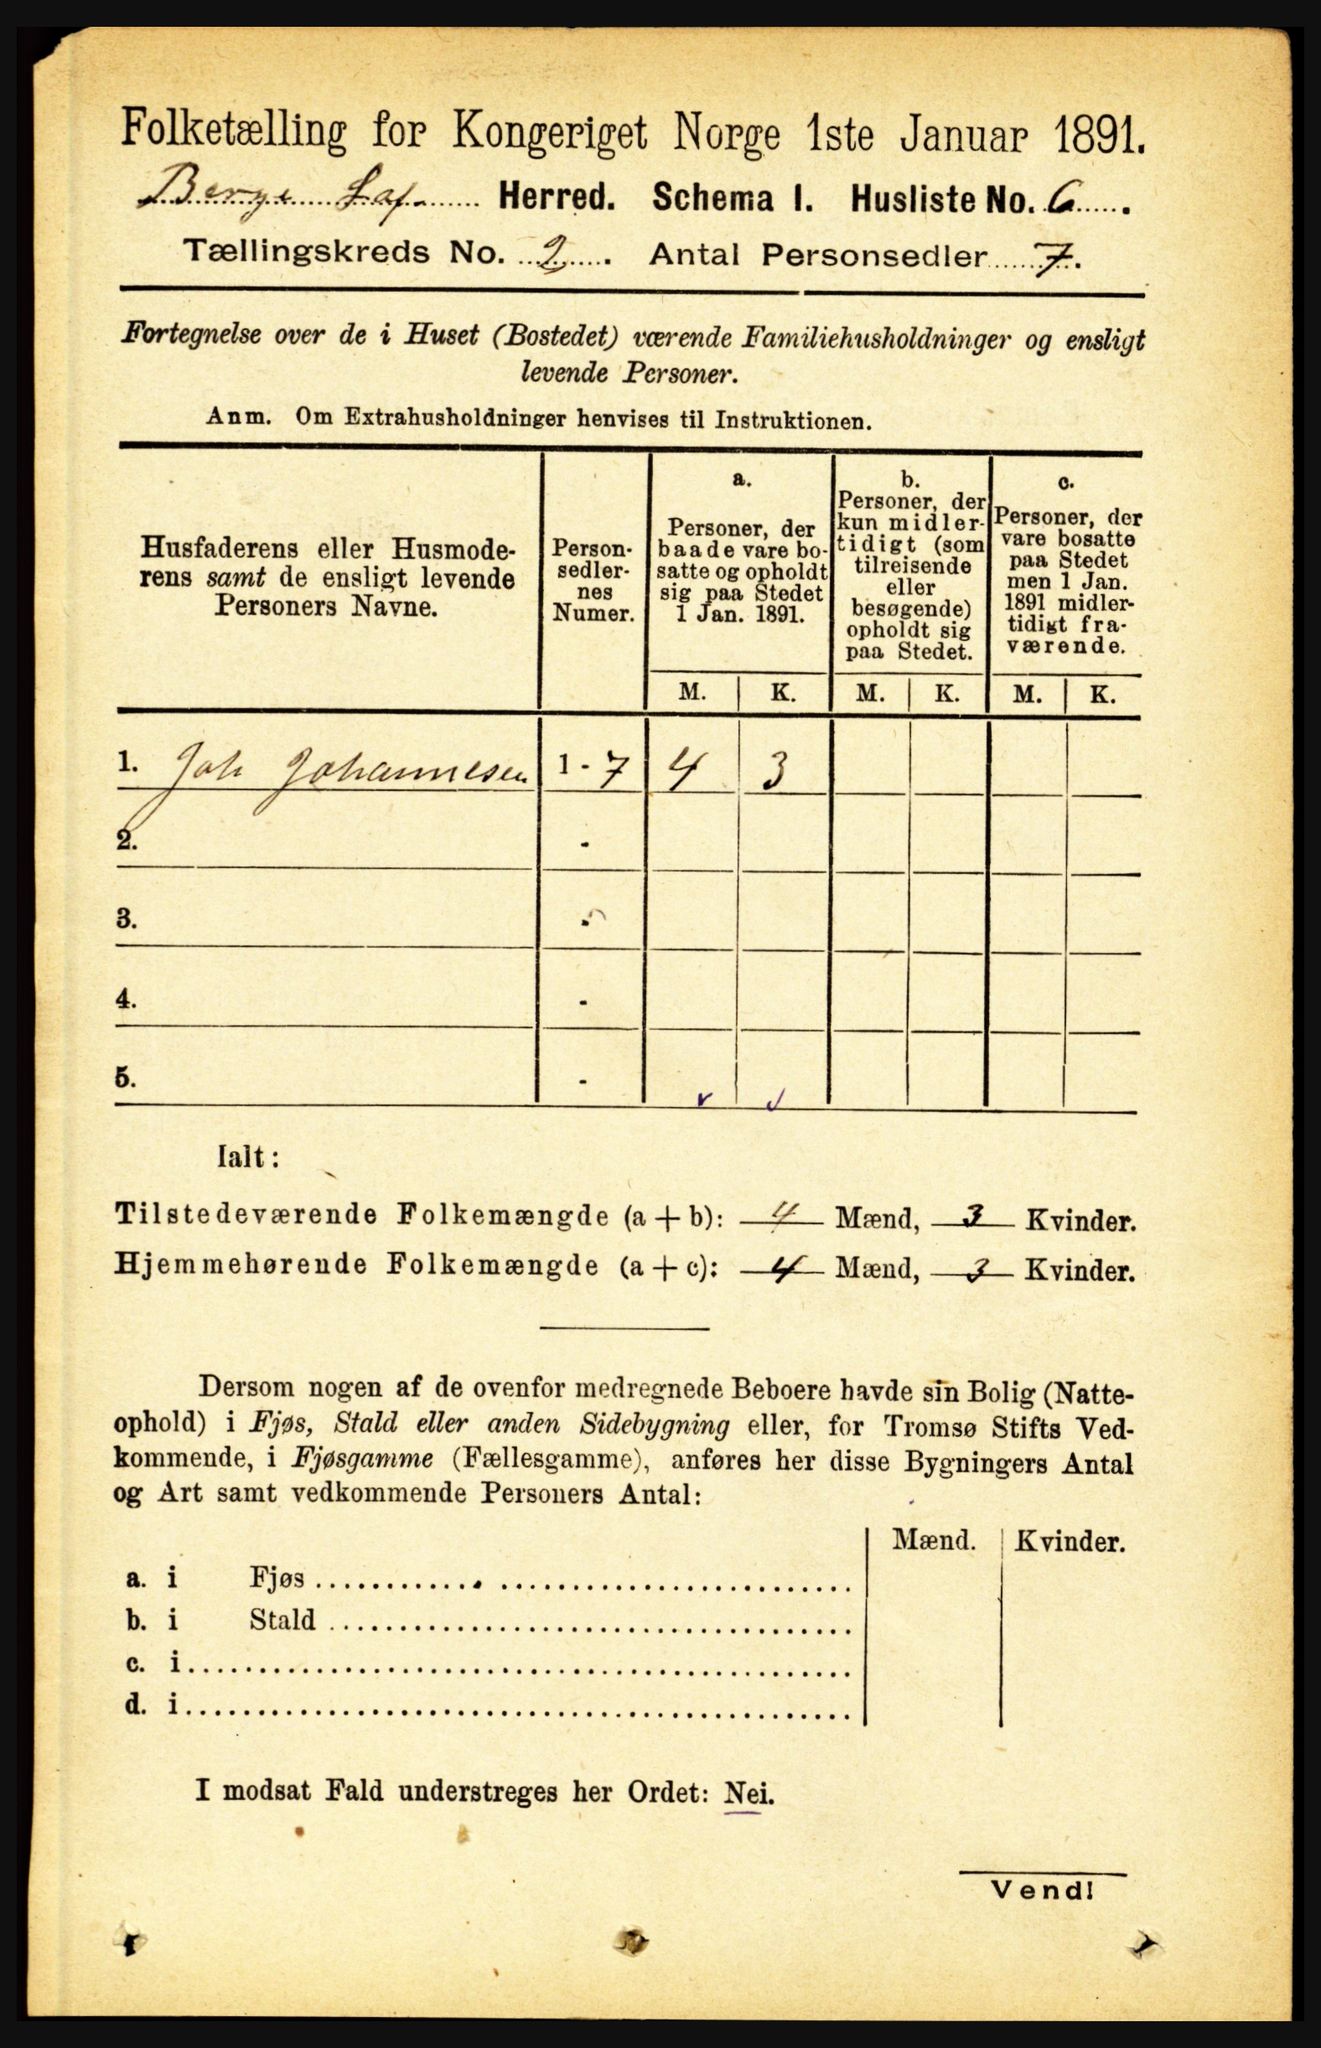 Folketælling for Kongeriget Norge 1ste Januar 1891.
Berge Herred. Schema I. Husliste No. 6.
Tællingskreds No. 2. Antal Personsedler 7.
Fortegnelse over de i Huset (Bostedet) værende Familiehusholdninger og ensligt
levende Personer.
Anm. Om Extrahusholdninger henvises til Instruktionen.
Husfaderens eller Husmode-
rens samt de ensligt levende
Personers Navne.
Person-
sedler-
nes
Numer.
a.
Personer, der
baade vare bo-
satte og opholdt
sig paa Stedet
1 Jan. 1891.
b.
Personer, der
kun midler-
tidigt (som
tilreisende
eller
besøgende)
opholdt sig
paa Stedet.
c.
Personer, der
vare bosatte
paa Stedet
men 1 Jan.
1891 midler-
tidigt fra-
værende.
M. K. M. K. M. K.
1. Joh Johannesen 1 - 7 4 3
2. -
3. -
4. -
5. -
Ialt:
Tilstedeværende Folkemængde (a + b): 4 Mænd, 3 Kvinder.
Hjemmehørende Folkemængde (a + c): 4 Mænd, 3 Kvinder.
Dersom nogen af de ovenfor medregnede Beboere havde sin Bolig (Natte-
ophold) i Fjøs, Stald eller anden Sidebygning eller, for Tromsø Stifts Ved-
kommende, i Fjøsgamme (Fællesgamme), anføres her disse Bygningers Antal
og Art samt vedkommende Personers Antal:
Mænd. Kvinder.
a. i Fjøs
b. i Stald
c. i
d. i
I modsat Fald understreges her Ordet: Nei.
Vend!